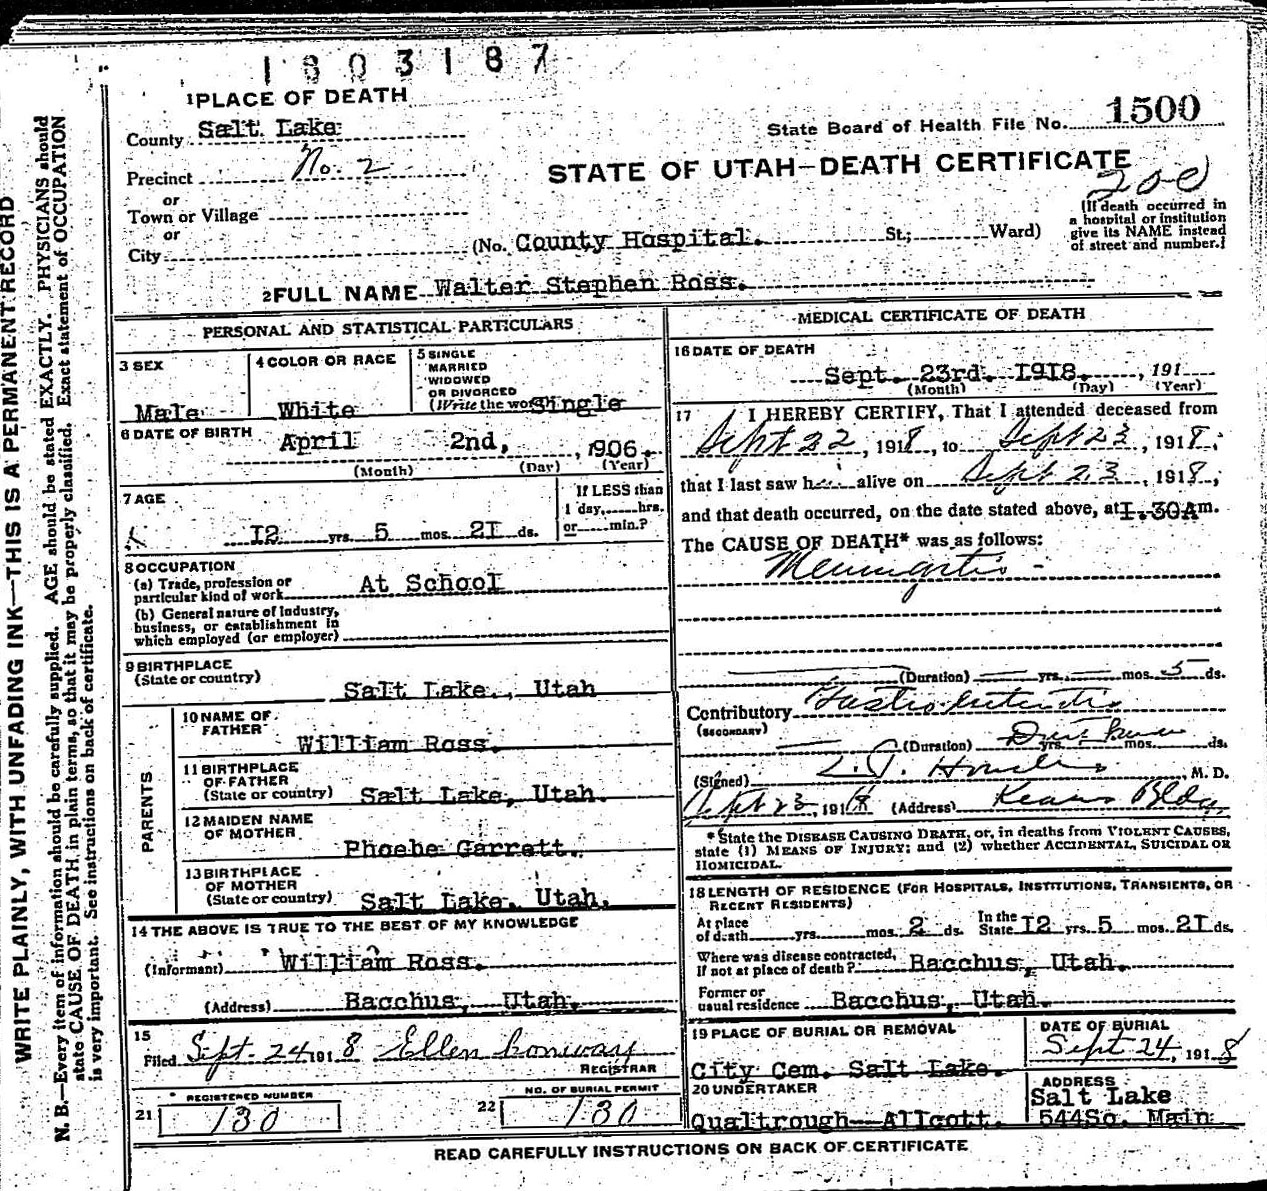 1803187
1 PLACE OF DEATH
County Salt Lake
State Board of Health File No. 1500
Precinct No. 2
STATE OF UTAH—DEATH CERTIFICATE
200
or
Town or Village
or
City
(No. County Hospital. St.; Ward)
(If death occurred in
a hospital or institution
give its NAME instead
of street and number.)
2 FULL NAME Walter Stephen Ross.
PERSONAL AND STATISTICAL PARTICULARS
3 SEX
Male
4 COLOR OR RACE
White
5 SINGLE
MARRIED
WIDOWED
OR DIVORCED
(Write the word) Single
6 DATE OF BIRTH
April 2nd, , 1906.
(Month) (Day) (Year)
7 AGE
12 yrs. 5 mos. 21 ds.
If LESS than
1 day, hrs.
or min.?
8 OCCUPATION
(a) Trade, profession or
particular kind of work At School
(b) General nature of industry,
business, or establishment in
which employed (or employer)
9 BIRTHPLACE
(State or country)
Salt Lake., Utah
PARENTS
10 NAME OF
FATHER
William Ross.
11 BIRTHPLACE
OF FATHER
(State or country) Salt Lake, Utah.
12 MAIDEN NAME
OF MOTHER
Phoebe Garrett.
13 BIRTHPLACE
OF MOTHER
(State or country) Salt Lake. Utah.
14 THE ABOVE IS TRUE TO THE BEST OF MY KNOWLEDGE
(Informant) William Ross.
(Address) Bacchus, Utah.
15
Filed Sept. 24 1918 Ellen Conway
REGISTRAR
21 REGISTERED NUMBER
130
22 NO. OF BURIAL PERMIT
130
MEDICAL CERTIFICATE OF DEATH
16 DATE OF DEATH
Sept. 23rd. 1918. , 191
(Month) (Day) (Year)
17 I HEREBY CERTIFY, That I attended deceased from
Sept 22, 1918, to Sept 23, 1918,
that I last saw him alive on Sept 23, 1918,
and that death occurred, on the date stated above, at 1.30A m.
The CAUSE OF DEATH* was as follows:
Meningitis
(Duration) yrs. mos. 5 ds.
Contributory Gastro enteritis
(SECONDARY)
(Duration) yrs. mos. ds.
(Signed) M. D.
Sept 23, 1918 (Address) Kearns Bldg
*State the DISEASE CAUSING DEATH, or, in deaths from VIOLENT CAUSES,
state (1) MEANS OF INJURY; and (2) whether ACCIDENTAL, SUICIDAL OR
HOMICIDAL.
18 LENGTH OF RESIDENCE (FOR HOSPITALS, INSTITUTIONS, TRANSIENTS, OR
RECENT RESIDENTS)
At place
of death yrs. mos. 2 ds.
In the
State 12 yrs. 5 mos. 21 ds.
Where was disease contracted,
if not at place of death? Bacchus, Utah.
Former or
usual residence Bacchus, Utah.
19 PLACE OF BURIAL OR REMOVAL
City Cem. Salt Lake.
DATE OF BURIAL
Sept 24, 1918
20 UNDERTAKER
Qualtrough—Allcott.
ADDRESS
Salt Lake
544So. Main
READ CAREFULLY INSTRUCTIONS ON BACK OF CERTIFICATE
WRITE PLAINLY, WITH UNFADING INK—THIS IS A PERMANENT RECORD
N. B.—Every item of information should be carefully supplied. AGE should be stated EXACTLY. PHYSICIANS should
state CAUSE OF DEATH in plain terms, so that it may be properly classified. Exact statement of OCCUPATION
is very important. See instructions on back of certificate.